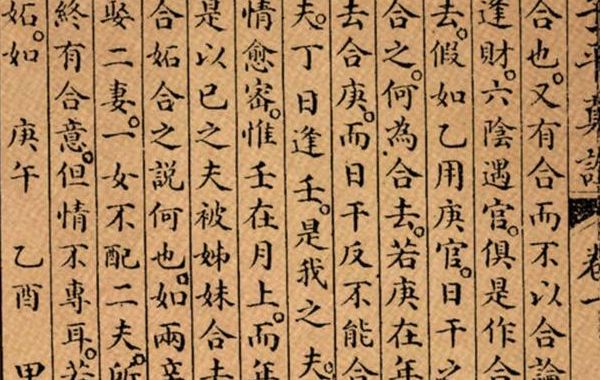 子平真詮 卷一
合也。又有合而不以合論
逢財。六陰遇官。俱是作合
去。假如乙用庚官。日干之
合之。何為合去。若庚在年
去合庚。而日干反不能合
夫。丁日逢壬。是我之夫。
情愈密。惟壬在月上。而年
是以已之夫被姊妹合去
合妬合之說何也。如兩辛
娶二妻。一女不配二夫。所
終有合意。但情不專耳。若
妬。如 庚午 乙酉 甲